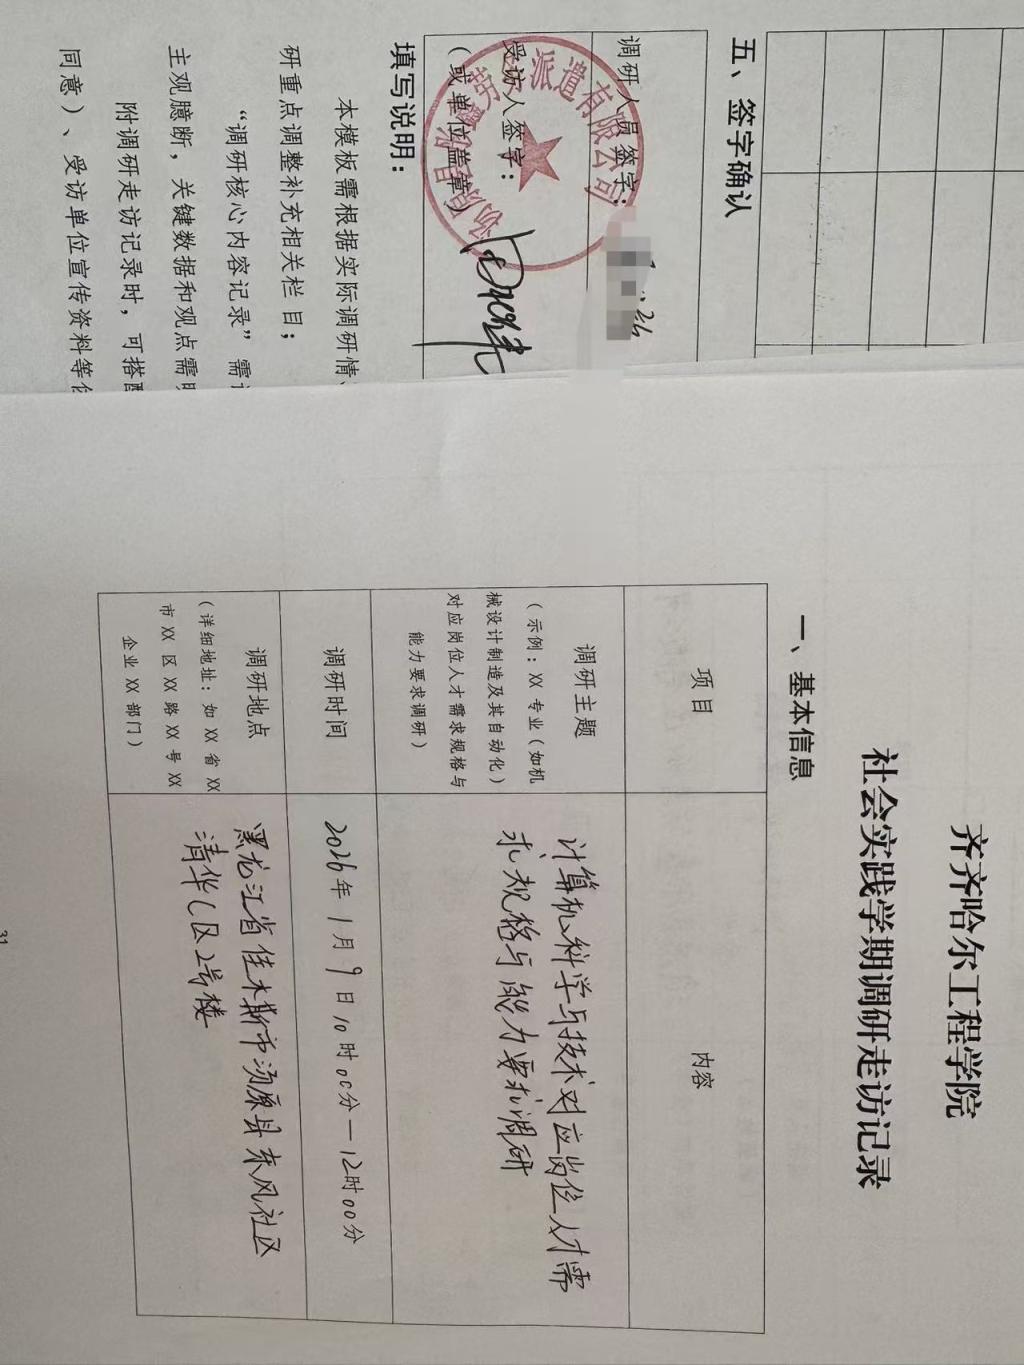 五、签字确认
调研人员签字：
受访人签字：
（或单位盖章）
劳务派遣有限公司
填写说明：
本模板需根据实际调研情
研重点调整补充相关栏目；
“调研核心内容记录”需
主观臆断，关键数据和观点需
附调研走访记录时，可搭配
同意）、受访单位宣传资料等
齐齐哈尔工程学院
社会实践学期调研走访记录
一、基本信息
项目
内容
调研主题
（示例：XX 专业（如机
械设计制造及其自动化）
对应岗位人才需求规格与
能力要求调研）
计算机科学与技术对应岗位人才需
求规格与能力要求调研
调研时间
2026年1月9日10时00分—12时00分
调研地点
（详细地址：如 XX 省 XX
市 XX 区 XX 路 XX 号 XX
企业 XX 部门）
黑龙江省佳木斯市汤原县东风社区
清华C区2号楼
31